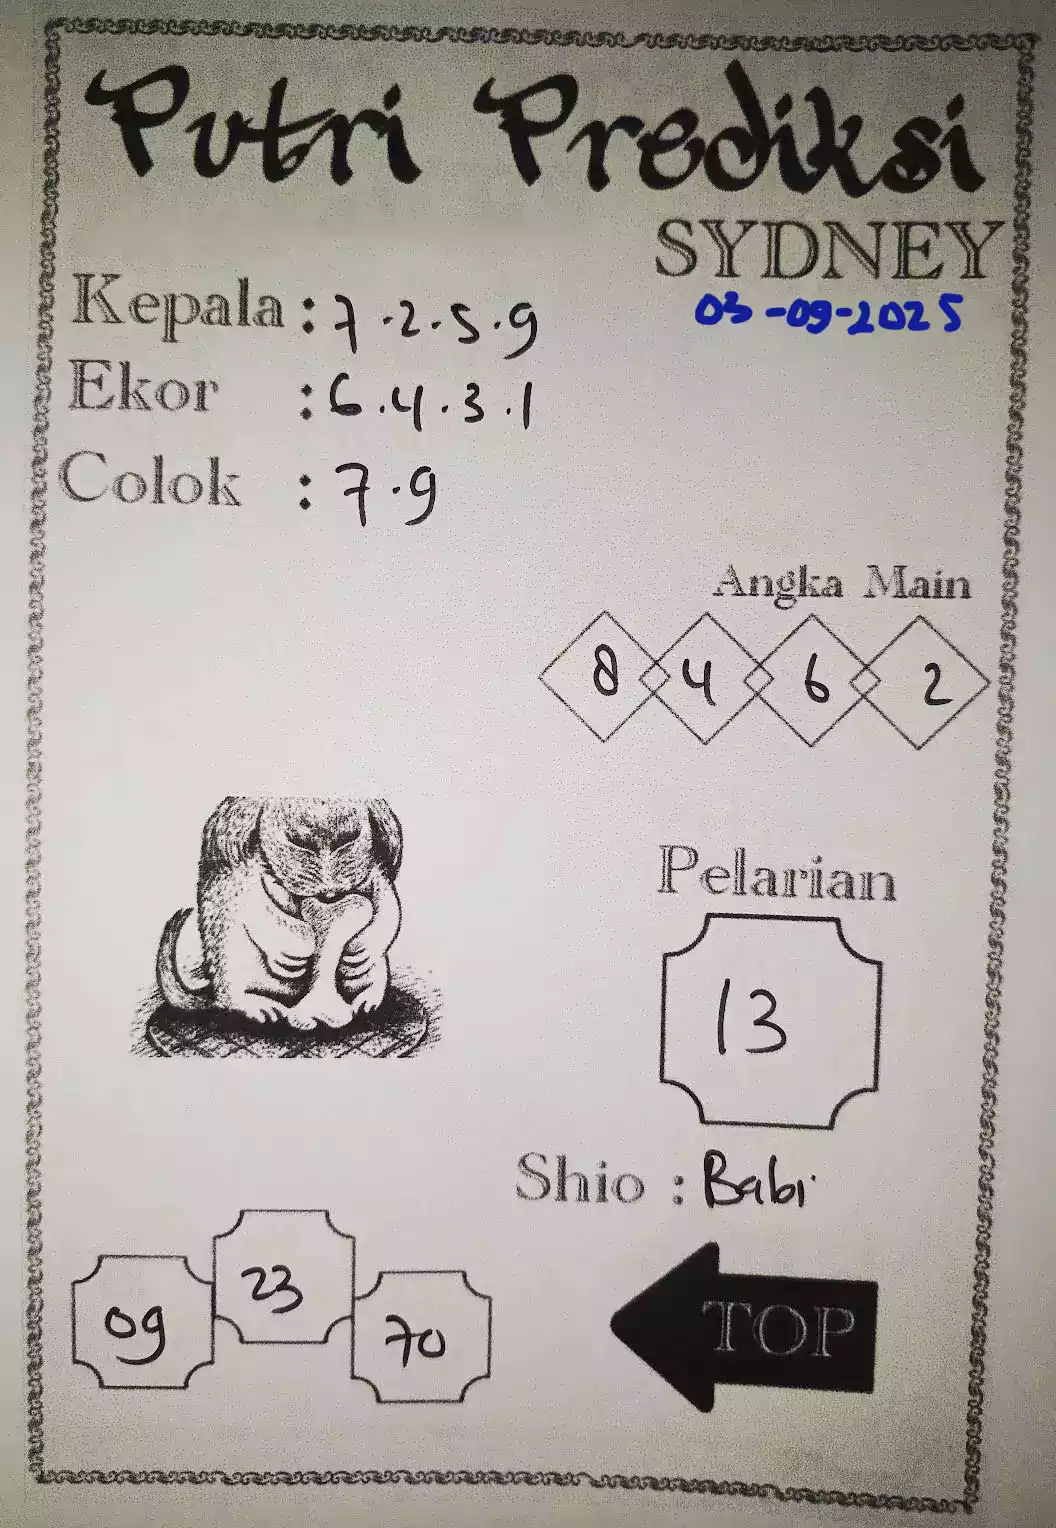 Putri Prediksi
SYDNEY
03-09-2025
Kepala : 7.2.5.9
Ekor : 6.4.3.1
Colok : 7.9
Angka Main
8 4 6 2
Pelarian
13
Shio : Babi
09 23 70
TOP